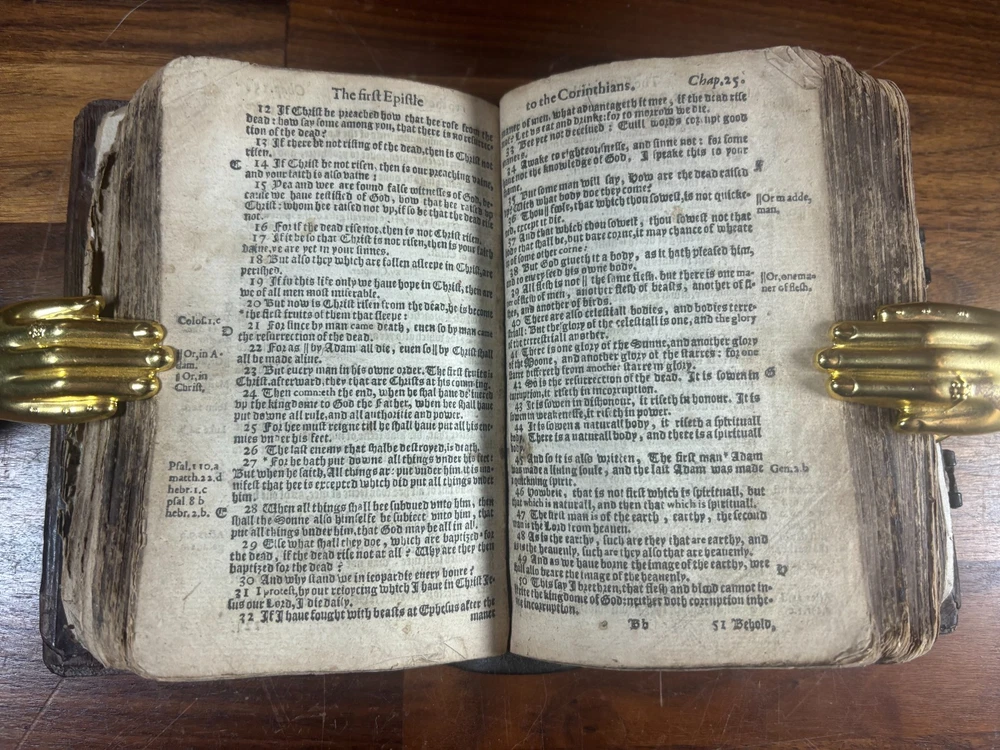 The first Epistle
12 If Christ be preached how that hee rose from the
dead: how say some among you, that there is no resurrec-
tion of the dead?
13 If there be not rising of the dead, then is Christ not
risen.
C 14 If Christ be not risen, then is our preaching vaine,
and your faith is also vaine:
15 Yea and wee are found false witnesses of God, be-
cause we haue testified of God, how that hee raised vp
Christ: whom hee raised not vp, if so be that the dead rise
not.
16 For if the dead rise not, then is not Christ risen.
17 If it be so that Christ is not risen, then is your faith
vaine, ye are yet in your sinnes.
18 But also they which are fallen asleepe in Christ, are
perished.
19 If in this life only we haue hope in Christ, then are
we of all men most miserable.
20 But now is Christ risen from the dead, he is become
*the first fruits of them that sleepe:
Colos.1.c
D 21 For since by man came death, euen so by man came
the resurrection of the dead.
|| Or, in A-
dam.
22 For as || by Adam all die, euen so || by Christ shall
all be made aliue.
|| Or, in
Christ,
23 But euery man in his owne order. The first fruites is
Christ, afterward, they that are Christs at his comming.
24 Then commeth the end, when he shal haue deliuered
vp the kingdome to God the Father, when hee shall haue
put downe all rule, and all authoritie and power.
25 For hee must reigne till he shall haue put all his ene-
mies vnder his feet.
26 The last enemy that shalbe destroyed, is death.
Psal.110.a
matth.22.d
hebr.1.c
psal 8 b
hebr.2.b. E
27 * For he hath put downe all things vnder his feet:
But when he saith, All things are put vnder him, it is ma-
nifest that hee is excepted which did put all things vnder
him.
28 When all things shall bee subdued vnto him, then
shall the Sonne also himselfe be subiect vnto him, that
put all things vnder him, that God may be all in all.
29 Else what shall they doe, which are baptized for
the dead, if the dead rise not at all? Why are they then
baptized for the dead?
30 And why stand we in ieopardie euery houre?
31 I protest, by our reioycing which I haue in Christ Ie-
sus our Lord, I die daily.
32 If I haue fought with beasts at Ephesus after the
maner
to the Corinthians. Chap.25.
of men, what aduantageth it mee, if the dead rise
Let vs eat and drinke: for to morrow we die.
33 Be yet not deceiued: Euill words corrupt good
34 Awake to righteousnesse, and sinne not: for some
haue not the knowledge of God, I speake this to your
F
35 But some man will say, How are the dead raised
vp? With what body doe they come?
36 Thou foole, that which thou sowest, is not quicke-
except it die.
|| Or madde,
man,
37 And that which thou sowest, thou sowest not that
body that shall be, but bare corne, it may chance of wheate
or of some other corne:
38 But God giueth it a body, as it hath pleased him,
and to euery seed his owne body.
39 All flesh is not || the same flesh, but there is one ma-
ner of flesh of men, another flesh of beasts, another of fi-
shes, and another of birds.
|| Or, one ma-
ner of flesh,
40 There are also celestiall bodies, and bodies terre-
striall: But the glory of the celestiall is one, and the glory
of the terrestriall another.
41 There is one glory of the Sunne, and another glory
of the Moone, and another glory of the starres: for one
starre differeth from another starre in glory.
42 So is the resurrection of the dead. It is sowen in G
corruption, it riseth in incorruption.
43 It is sowen in dishonour, it riseth in honour. It is
sowen in weakenesse, it riseth in power.
44 It is sowen a naturall body, it riseth a spirituall
body. There is a naturall body, and there is a spirituall
body.
45 And so it is also written, The first man* Adam
was made a liuing soule, and the last Adam was made
a quickning spirit.
Gen.2.b
46 Howbeit, that is not first which is spirituall, but
that which is naturall, and then that which is spirituall.
47 The first man is of the earth, earthy, the second
man is the Lord from heauen.
48 As is the earthy, such are they that are earthy, and
as is the heauenly, such are they also that are heauenly.
49 And as we haue borne the image of the earthy, wee
shall also beare the image of the heauenly.
50 This say I brethren, that flesh and blood cannot in-
herite the kingdome of God: neither doth corruption inhe-
rite incorruption.
Bb 51 Behold,